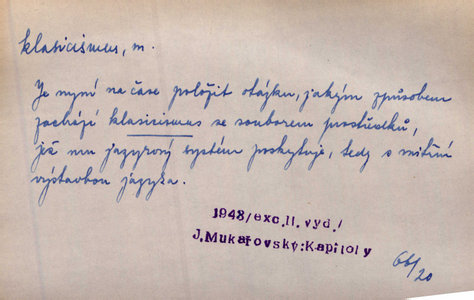 klasicismus, m.
Je nyní na čase položit otázku, jakým způsobem
zachází klasicismus se souborem prostředků,
jež mu jazykový systém poskytuje, tedy s vnitřní
výstavbou jazyka.
1948/exc.II.vyd./
J.Mukařovský:Kapitoly
66/20